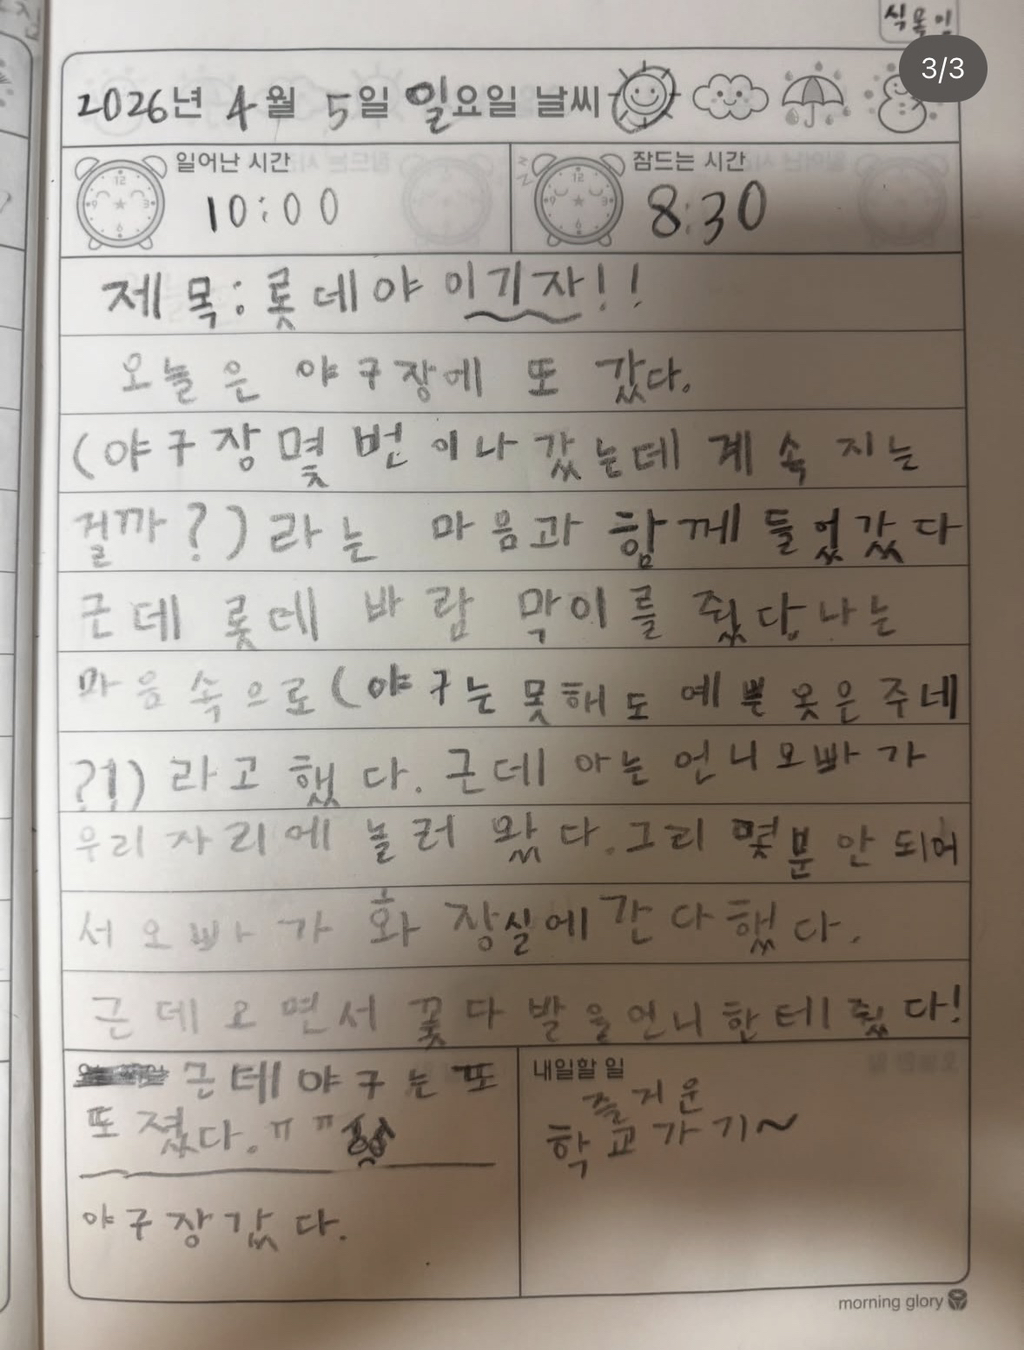 식목일
3/3
2026년 4월 5일 일요일 날씨
일어난 시간
10:00
잠드는 시간
8:30
제목: 롯데야 이기자!!
오늘은 야구장에 또 갔다.
(야구장 몇 번이나 갔는데 계속 지는
걸까?)라는 마음과 함께 들어갔다
근데 롯데 바람 막이를 줬다. 나는
마음속으로(야구는 못해도 예쁜 옷은 주네
?!)라고 했다. 근데 아는 언니오빠가
우리자리에 놀러 왔다. 그리 몇분 안 되어
서 오빠가 화장실에 간다 했다.
근데 오면서 꽃다발을 언니한테 줬다!
근데 야구는 또
또 졌다. ㅠㅠ
야구장 갔다.
내일할 일
즐거운
학교가기~
morning glory